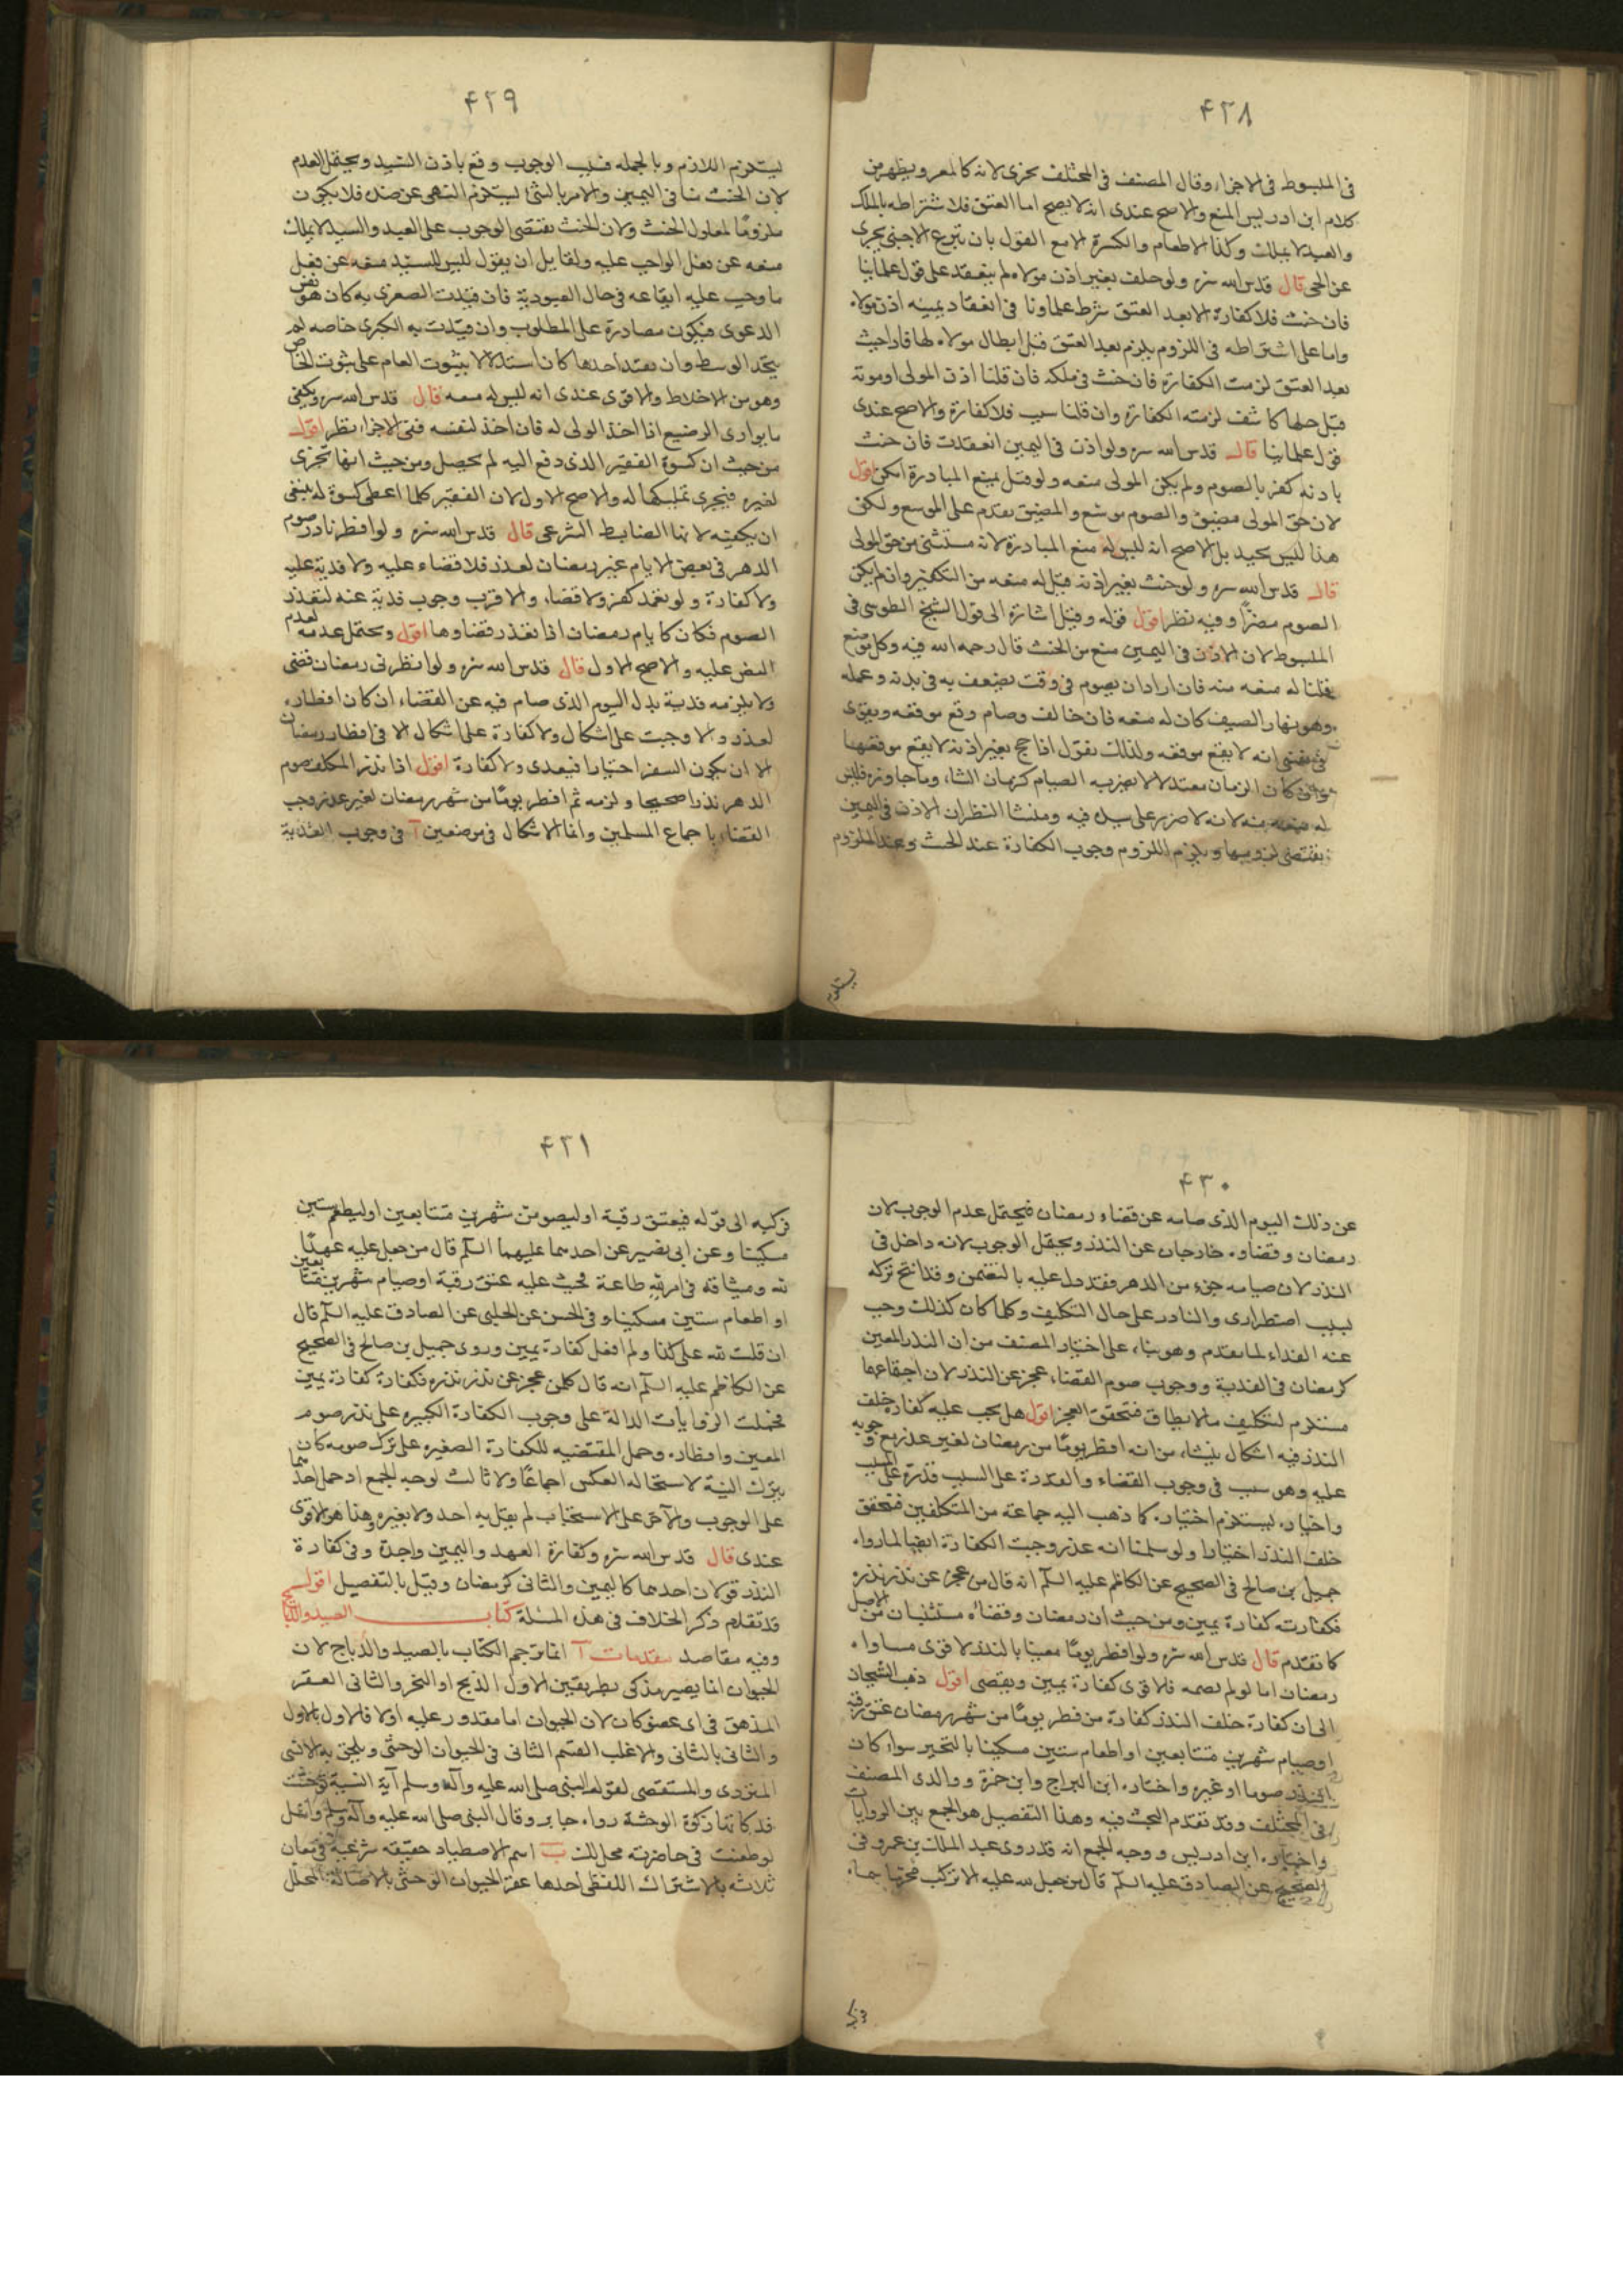 ۴۲۸
فى المبسوط فى الاجزاء وقال المصنف فى المختلف يجزى لانه كالمعسر ويظهر من
كلام ابن ادريس المنع والاصح عندى انه لا يصح اما العتق فلاشتراطه بالملك
والعبد لا يملك وكذا الاطعام والكسوة الا مع القول بان تبرع الاجنبى يجزى
عن الحى قال قدس الله سره ولو حلف بغير اذن مولاه لم ينعقد على قول علمائنا
فان حنث فلا كفارة الا بعد العتق شرط علماونا فى انعقاد يمينه اذن مولاه
واما على اشتراطه فى اللزوم يلزم بعد العتق قبل ابطال مولاه لها فاذا حنث
بعد العتق لزمت الكفارة فان حنث فى ملكه فان قلنا اذن المولى او موته
قبل حلها كاشف لزمته الكفارة وان قلنا سبب فلا كفارة والاصح عندى
قول علمائنا قال قدس الله سره ولو اذن فى اليمين انعقدت فان حنث
باذنه كفر بالصوم ولم يكن للمولى منعه ولو قيل بمنع المبادرة امكن اقول
لان حق المولى مضيق والصوم موسع والمضيق يقدم على الموسع ولكن
هذا ليس بجيد بل الاصح انه ليس له منع المبادرة لانه مستثنى من حق المولى
قال قدس الله سره ولو حنث بغير اذنه قيل له منعه من التكفير وان لم يكن
الصوم مضرًا وفيه نظر اقول قوله وقيل اشارة الى قول الشيخ الطوسى فى
المبسوط لان الاذن فى اليمين منع من الحنث قال رحمه الله فيه وكل موضع
قلنا له منعه منه فان اراد ان يصوم فى وقت يضعف به فى بدنه وعمله
وهو نهار الصيف كان له منعه فان خالف وصام وقع موقعه ويقوى
فى نفسى انه لا يقع موقعه ولذلك نقول اذا حج بغير اذنه لا يقع موقعهما
وان كان الزمان معتدلا لا يضر به الصيام كزمان الشتاء وما جاوزه فليس
له منعه منه لانه لا ضرر على سيده فيه ومنشأ النظر ان الاذن فى اليمين
يقتضى لزومها ويلزم اللزوم وجوب الكفارة عند الحنث وعند الملزوم
يستلزم
۴۲۹
يستلزم اللازم وبالجمله فسبب الوجوب وقع باذن السيد ويحتمل العدم
لان الحنث ينافى اليمين والامر بالشئ يستلزم النهى عن ضده فلا يكون
ملزومًا لمعلول الحنث ولان الحنث يقتضى الوجوب على العبد والسيد لا يملك
منعه عن فعل الواجب عليه ولقايل ان يقول ليس للسيد منعه عن فعل
ما وجب عليه ايقاعه فى حال العبودية فان قيدت الصغرى به كان هو نفس
الدعوى فيكون مصادرة على المطلوب وان قيدت به الكبرى خاصه لم
يتحد الوسط وان بعد احدهما كان استدلالا بثبوت العام على ثبوت الخاص
وهو من الاغلاط والاقوى عندى انه ليس له منعه قال قدس الله سره ويكفى
ما يوارى الرضيع اذا اخذ الولى له فان اخذ لنفسه ففى الاجزاء نظر اقول
من حيث ان كسوة الفقير الذى دفع اليه لم يحصل ومن حيث انها تجزى
لغيره فيجزى تمليكها له والاصح الاول لان الفقير كلما اعطى كسوة له ينبغى
ان يكفيه لانها الضابط الشرعى قال قدس الله سره ولو افطر ناذر صوم
الدهر فى بعض الايام غير رمضان لعذر فلا قضاء عليه ولا فدية عليه
ولا كفارة ولو تعمد كفر ولا قضاء والاقرب وجوب فدية عنه لتعذر
الصوم فكان كايام رمضان اذا تعذر قضاوها اقول ويحتمل عدمه لعدم
النص عليه والاصح الاول قال قدس الله سره ولو افطر فى رمضان قضى
ولا يلزمه فدية بدل اليوم الذى صام فيه عن القضاء ان كان افطاره
لعذر والا وجبت على اشكال ولا كفارة على اشكال الا فى افطار رمضان
الا ان يكون السفر اختيارا فيعدى ولا كفارة اقول اذا نذر المكلف صوم
الدهر نذرا صحيحا ولزمه ثم افطر يومًا من شهر رمضان لغير عذر وجب
القضاء باجماع المسلمين وانما الاشكال فى موضعين آ فى وجوب الفدية
۴۳۰
عن ذلك اليوم الذى صامه عن قضاء رمضان فيحتمل عدم الوجوب لان
رمضان وقضاوه خارجان عن النذر ويحتمل الوجوب لانه داخل فى
النذر لان صيامه جزء من الدهر فقد دل عليه بالتضمن وقد اتح تركه
لسبب اضطرارى والنادر على حال التكليف وكلما كان كذلك وجب
عنه الفداء لما تقدم وهو بناء على اختيار المصنف من ان النذر المعين
كرمضان فى الفدية ووجوب صوم القضاء عجز عن النذر لان اجتماعهما
مستلزم لتكليف ما لا يطاق فتحقق العجز اقول هل يجب عليه كفارة خلف
النذر فيه اشكال ينشاء من انه افطر يومًا من رمضان لغير عذر مع وجوبه
عليه وهو سبب فى وجوب القضاء والقدرة على السبب قدرة على المسبب
واختياره ليستلزم اختياره كما ذهب اليه جماعة من المتكلفين فتحقق
خلف النذر اختيارا ولو سلمنا انه عذر وجبت الكفارة ايضا لما رواه
جميل بن صالح فى الصحيح عن الكاظم عليه السلم انه قال من عجز عن نذر نذره
فكفارته كفارة يمين ومن حيث ان رمضان وقضائه مستثنيان من الاصل
كما تقدم قال قدس الله سره ولو افطر يومًا معينا بالنذر لا قوى مساواه
رمضان اما لو لم يصمه فلاقوى كفارة يمين ويقضى اقول ذهب الشيخان
الى ان كفارة خلف النذر كفارة من فطر يومًا من شهر رمضان عتق رقبة
او صيام شهرين متتابعين او اطعام ستين مسكينا بالتخير سواء كان
النذر صوما او غيره واختاره ابن البراج وابن حمزة ووالدى المصنف
فى المختلف وقد تقدم البحث فيه وهذا التفصيل هو الجمع بين الروايات
واختاره ابن ادريس ووجه الجمع انه قد روى عبد الملك بن عمرو فى
الصحيح عن الصادق عليه السلم قال من جعل لله عليه الا تركب محرما سماه
فركبه
۴۲۱
فركبه الى قوله فيعتق رقبة او ليصومن شهرين متتابعين او ليطعم ستين
مسكينا وعن ابى بصير عن احدهما عليهما السلم قال من جعل عليه عهدًا
لله وميثاقه فى امر لله طاعة فحنث عليه عتق رقبة او صيام شهرين متتابعين
او اطعام ستين مسكينا وفى الحسن عن الحلبى عن الصادق عليه السلم قال
ان قلت لله على كذا ولم افعل كفارة يمين وروى جميل بن صالح فى الصحيح
عن الكاظم عليه السلم انه قال كلمن عجز عن نذر نذره فكفارة كفارة يمين
فحملت الروايات الدالة على وجوب الكفارة الكبيره على نذر صوم
المعين وافطاره وحمل المقتضيه للكفارة الصغيره على ترك صومه كان
بترك النية لاستحاله العكس اجماعًا ولا ثالث لوجه الجمع اذ حمل احدهما
على الوجوب والآخر على الاستحباب لم يقل به احد ولا بغيره وهذا هو الاقوى
عندى قال قدس الله سره وكفارة العهد واليمين واحدة وفى كفارة
النذر قولان احدهما كاليمين والثانى كرمضان وقيل بالتفصيل اقول
قد تقدم ذكر الخلاف فى هذه المسئلة كتاب الصيد والذبايح
وفيه مقاصد مقدمات آ انما ترجم الكتاب بالصيد والذباج لان
الحيوان انما يصير مذكى بطريقين الاول الذبح او النحر والثانى العقر
المزهق فى اى عضو كان لان الحيوان اما مقدور عليه اولا فالاول بالاول
والثانى بالثانى والاغلب القسم الثانى فى الحيوان الوحشى ويلحق به الانسى
المتردى والمستقصى لقوله النبى صلى الله عليه وآله وسلم آية النسية توحشت
فذكاتها زكوة الوحشة رواه جابر وقال النبى صلى الله عليه وآله وسلم
لو طعنت فى خاصرته محل لك ب اسم الاصطياد حقيقه شرعية فى معان
ثلاثه بالاشتراك اللفظى احدها عقر الحيوان الوحشى بالاصالة المحلل